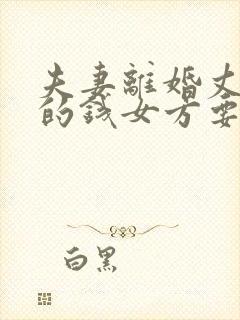 夫妻離婚丈
的錢女方要
白黑